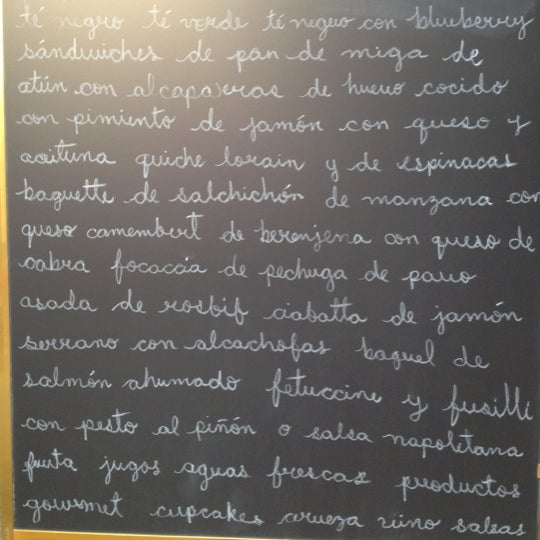 té negro té verde té negro con blueberry
sándwiches de pan de miga de
atún con alcaparras de huevo cocido
con pimiento de jamón con queso y
aceituna quiche lorain y de espinacas
baguette de salchichón de manzana con
queso camembert de berenjena con queso de
cabra focaccia de pechuga de pavo
asada de rosbif ciabatta de jamón
serrano con alcachofas baguel de
salmón ahumado fetuccine y fusilli
con pesto al piñón o salsa napolitana
fruta jugos aguas frescas productos
gourmet cupcakes cerveza vino salsas